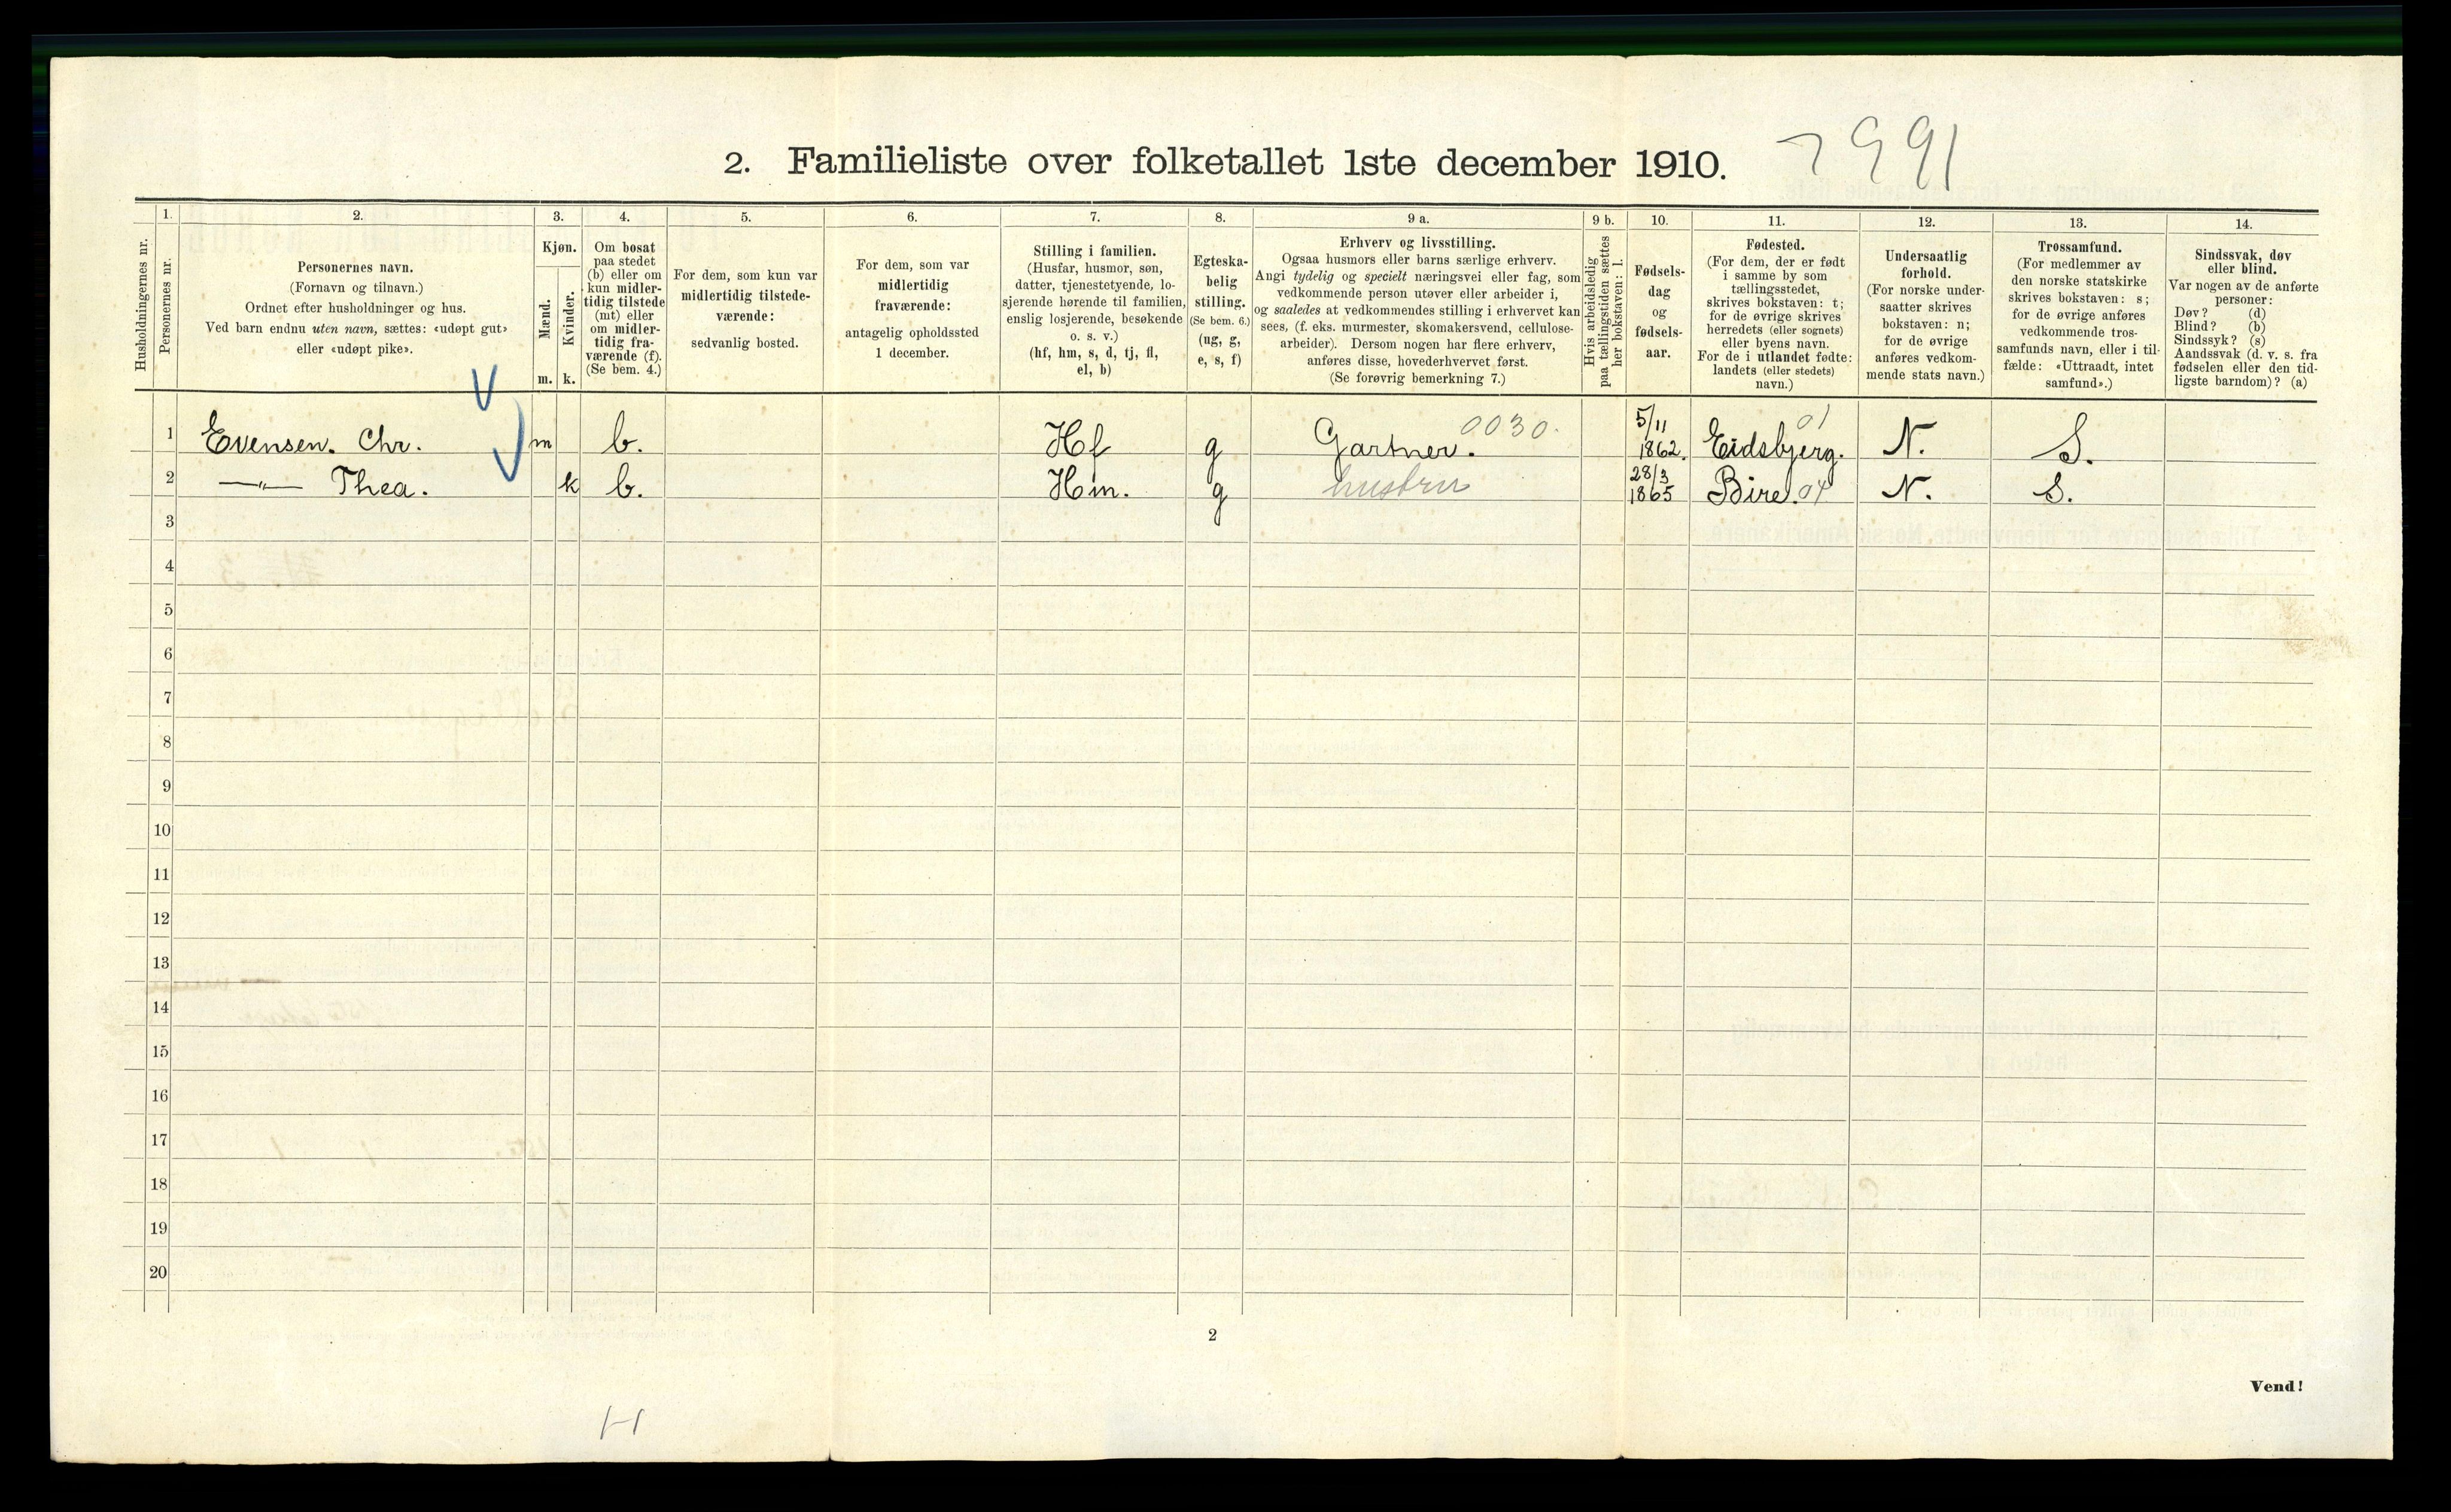 2. Familieliste over folketallet 1ste december 1910.
7991
Husholdningernes nr.
1.
Personernes nr.
2.
Personernes navn.
(Fornavn og tilnavn.)
Ordnet efter husholdninger og hus.
Ved barn endnu uten navn, sættes: «udøpt gut»
eller «udøpt pike».
3.
Kjøn.
Mænd.
Kvinder.
m. k.
4.
Om bosat
paa stedet
(b) eller om
kun midler-
tidig tilstede
(mt) eller
om midler-
tidig fra-
værende (f).
(Se bem. 4.)
5.
For dem, som kun var
midlertidig tilstede-
værende:
sedvanlig bosted.
6.
For dem, som var
midlertidig
fraværende:
antagelig opholdssted
1 december.
7.
Stilling i familien.
(Husfar, husmor, søn,
datter, tjenestetyende, lo-
sjerende hørende til familien,
enslig losjerende, besøkende
o. s. v.)
(hf, hm, s, d, tj, fl,
el, b)
8.
Egteska-
belig
stilling.
(Se bem. 6.)
(ug, g,
e, s, f)
9 a.
Erhverv og livsstilling.
Ogsaa husmors eller barns særlige erhverv.
Angi tydelig og specielt næringsvei eller fag, som
vedkommende person utøver eller arbeider i,
og saaledes at vedkommendes stilling i erhvervet kan
sees, (f. eks. murmester, skomakersvend, cellulose-
arbeider). Dersom nogen har flere erhverv,
anføres disse, hovederhvervet først.
(Se forøvrig bemerkning 7.)
9 b.
Hvis arbeidsledig
paa tællingstiden sættes
her bokstaven: l.
10.
Fødsels-
dag
og
fødsels-
aar.
11.
Fødested.
(For dem, der er født
i samme by som
tællingsstedet,
skrives bokstaven: t;
for de øvrige skrives
herredets (eller sognets)
eller byens navn.
For de i utlandet fødte:
landets (eller stedets)
navn.)
12.
Undersaatlig
forhold.
(For norske under-
saatter skrives
bokstaven: n;
for de øvrige
anføres vedkom-
mende stats navn.)
13.
Trossamfund.
(For medlemmer av
den norske statskirke
skrives bokstaven: s;
for de øvrige anføres
vedkommende tros-
samfunds navn, eller i til-
fælde: «Uttraadt, intet
samfund».)
14.
Sindssvak, døv
eller blind.
Var nogen av de anførte
personer:
Døv? (d)
Blind? (b)
Sindssyk? (s)
Aandssvak (d. v. s. fra
fødselen eller den tid-
ligste barndom)? (a)
1 Evensen. Chr. m b. Hf g Gartner. 0030. 5/11 1862. Eidsbjerg. 01 N. S.
2 —"— Thea. k b. Hm. g hustru 28/3 1865 Bire. 04 N. S.
3
4
5
6
7
8
9
10
11
12
13
14
15
16
17
18
19
20
2
Vend!